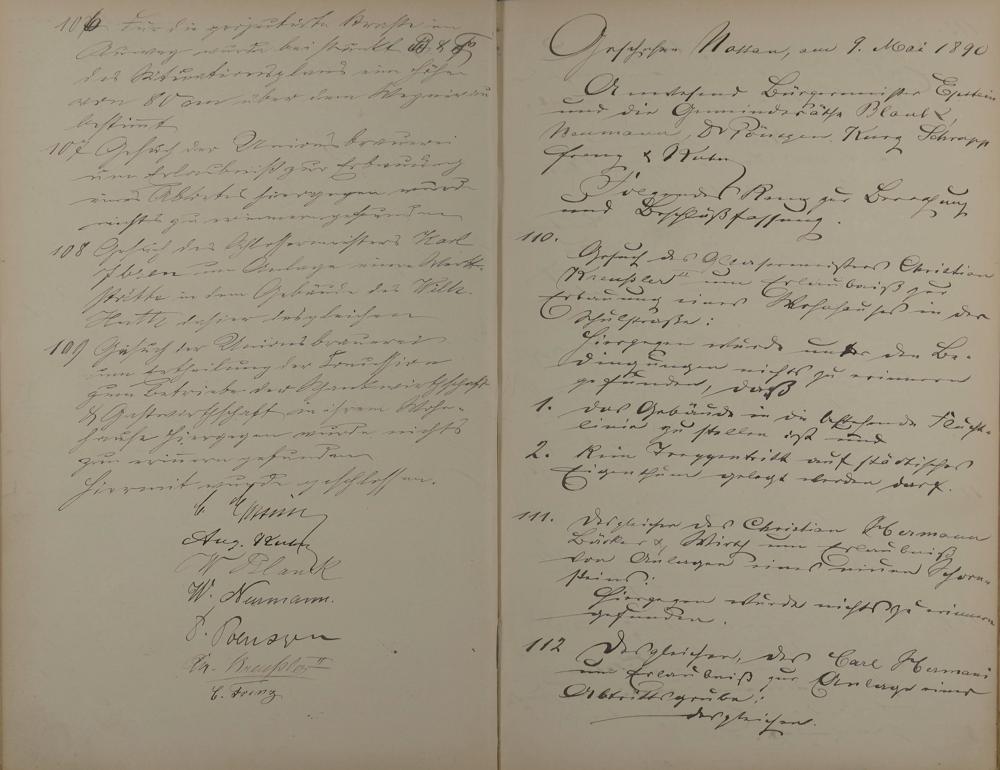 106 Für die projectirte Straße im
Auweg wurde bei Punkt B & F
des Situationsplans eine Höhe
von 80 cm über dem Wegniveau
bestimmt
107 Gesuch der Unionsbrauerei
um Erlaubniß zur Erbauung
eines Abortes hiergegen wurde
nichts zu erinnern gefunden
108 Gesuch des Schlossermeisters Karl
um Anlage einer Werk-
stätte in dem Gebäude des Wilh.
dahier desgleichen
109 Gesuch der Unionsbrauerei
um Ertheilung der Concession
zum Betriebe der Schankwirthschaft
& Gastwirthschaft in ihrem Wohn-
hause hiergegen wurde nichts
zu erinnern gefunden
Hiermit wurde geschlossen.
Aug. Kuhn
W Blank
W. Neumann.
P. Poensgen
Chr. Kreußler II
C. Franz
Geschehen Nassau, am 9. Mai 1890
Anwesend Bürgermeister Epstein
und die Gemeinderäthe Blank,
Neumann, Dr Pönsgen, Kurz, Schrapp
Franz & Kuhn
Folgendes kam zur Berathung
und Beschlußfassung.
110.
Gesuch des Christian
Kreußler II um Erlaubniß zur
Erbauung eines Wohnhauses in der
Schulstraße:
Hiergegen wurde unter den Be-
dingungen nichts zu erinnern
gefunden, daß
1. das Gebäude in die bestehende Flucht-
linie zu stellen ist und
2. kein Treppentritt auf städtisches
Eigenthum gelegt werden darf.
111. Desgleichen des Christian Hermann
Bäcker & Wirth um Erlaubniß
von Anlagen eines neuen Schorn-
steins:
Hiergegen wurde nichts zu erinnern
gefunden.
112 Desgleichen, des Carl Hermani
um Erlaubniß zur Anlage einer
Abtrittsgrube:
desgleichen.